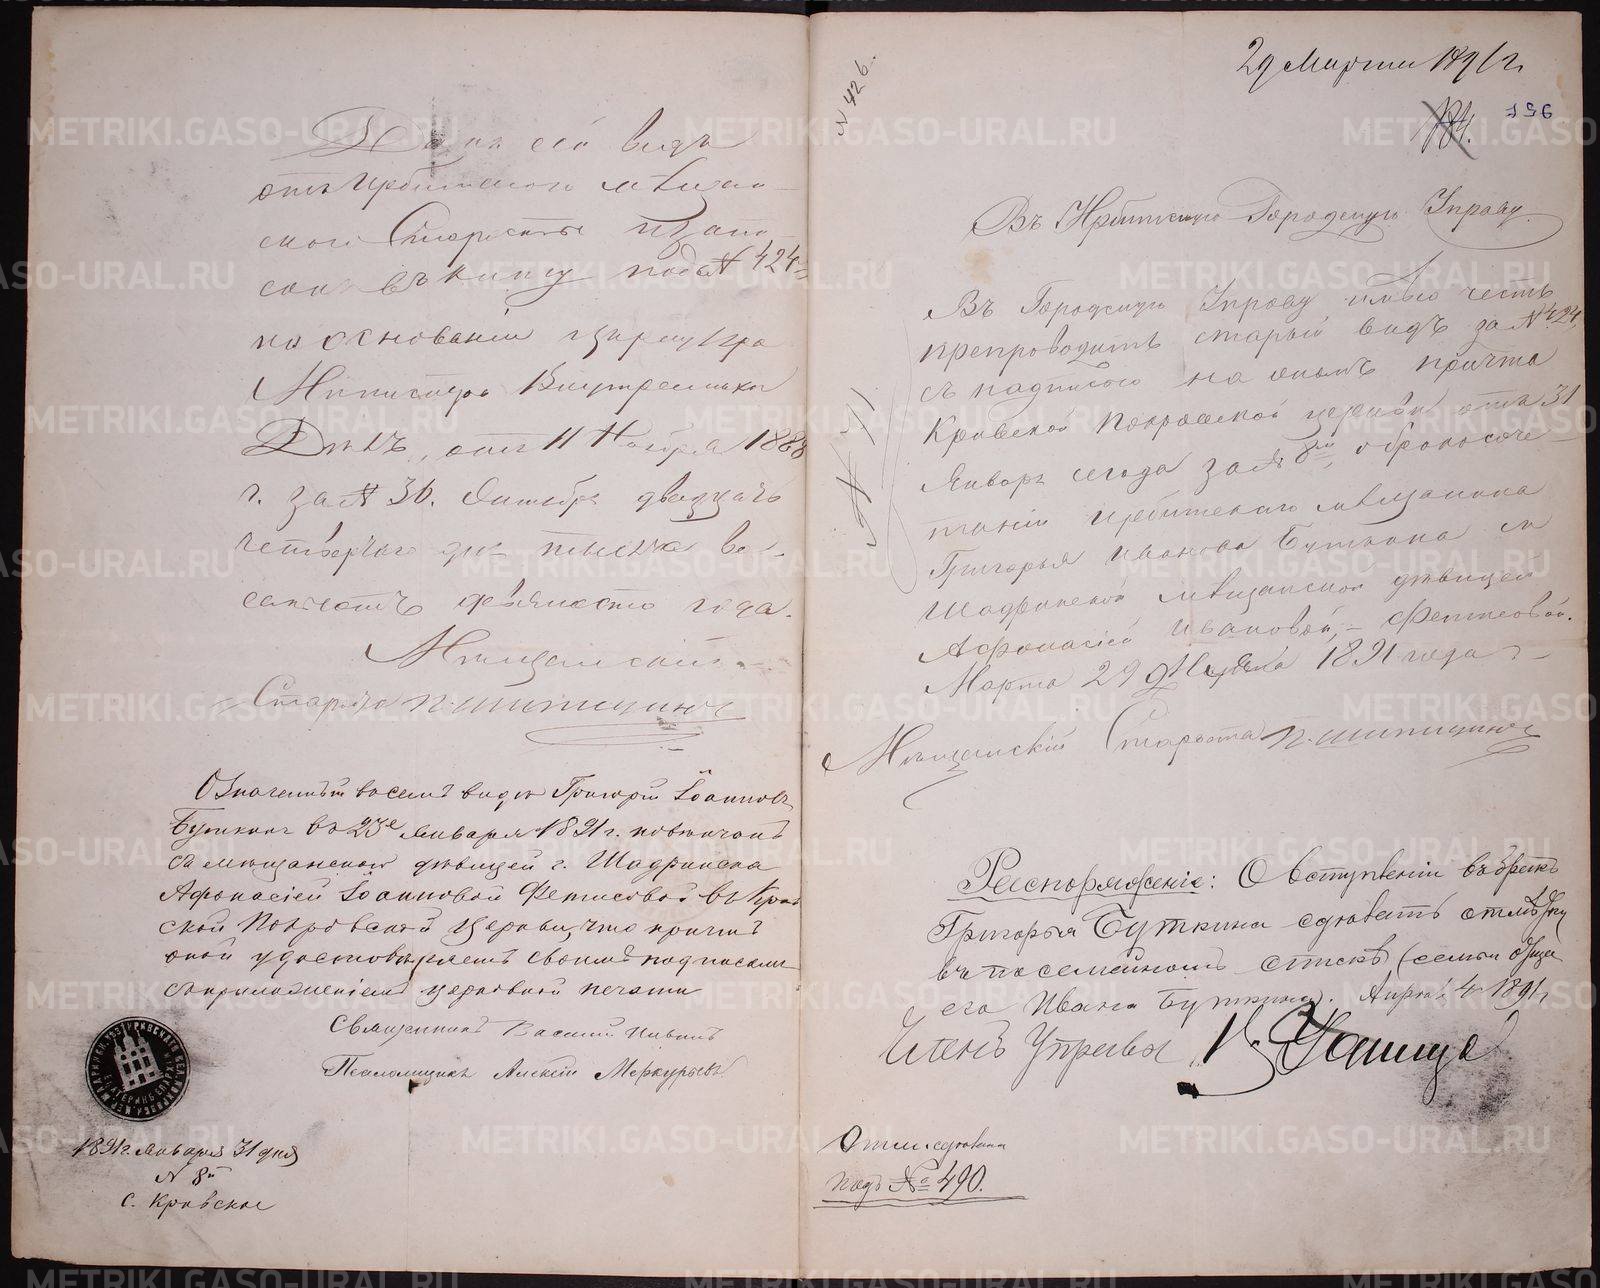 Данъ сей видъ
отъ Ирбитскаго мѣщан-
скаго Старосты и запи-
санъ въ книгу подъ № 424
на основаніи циркуляра
Министра Внутреннихъ
Дѣлъ, отъ 11 Ноября 1888
г. за № 36. Октября двадцать
четвертаго дня тысяча во-
семьсотъ девяностаго года.
Мѣщанскій
Староста П. Шипицинъ
Означенный въ семъ видѣ Григорій Іоанновъ
Буткинъ въ 23е Января 1891 г. повѣнчанъ
съ мѣщанской дѣвицей г. Шадринска
Афонасіей Іоанновой Фетисовой въ Крив-
ской Покровской церкви, что причтъ
оной удостовѣряетъ своимъ подписомъ
съ приложеніемъ церковной печати
Священникъ Василій
Псаломщикъ Алексій Меркурьевъ
1891 г. Января 31 дня
№ 8й
с. Кривское
N 426.
29 Марта 1891 г.
184.
156
Въ Ирбитскую Городскую Управу.
Въ Городскую Управу имѣю честь
препроводить старый видъ за № 424,
съ надписью на ономъ причта
Кривской Покровской церкви отъ 31
Января сего года за № 8м, о бракосоче-
таніи Ирбитскаго мѣщанина
Григорья Иванова Буткина съ
Шадринской мѣщанской дѣвицей
Афонасіей Ивановой Фетисовой.
Марта 29 дня 1891 года
Мѣщанскій Староста П. Шипицинъ
№ 71
Распоряженіе: О вступленіи въ бракъ
Григорья Буткина сдѣлать отмѣтку
въ посемейномъ спискѣ (семьи отца
его Ивана Буткина). Апрѣля 4 1891 г.
Членъ Управы
Отмѣтка сдѣлана
подъ № 490.
METRIKI.GASO-URAL.RU